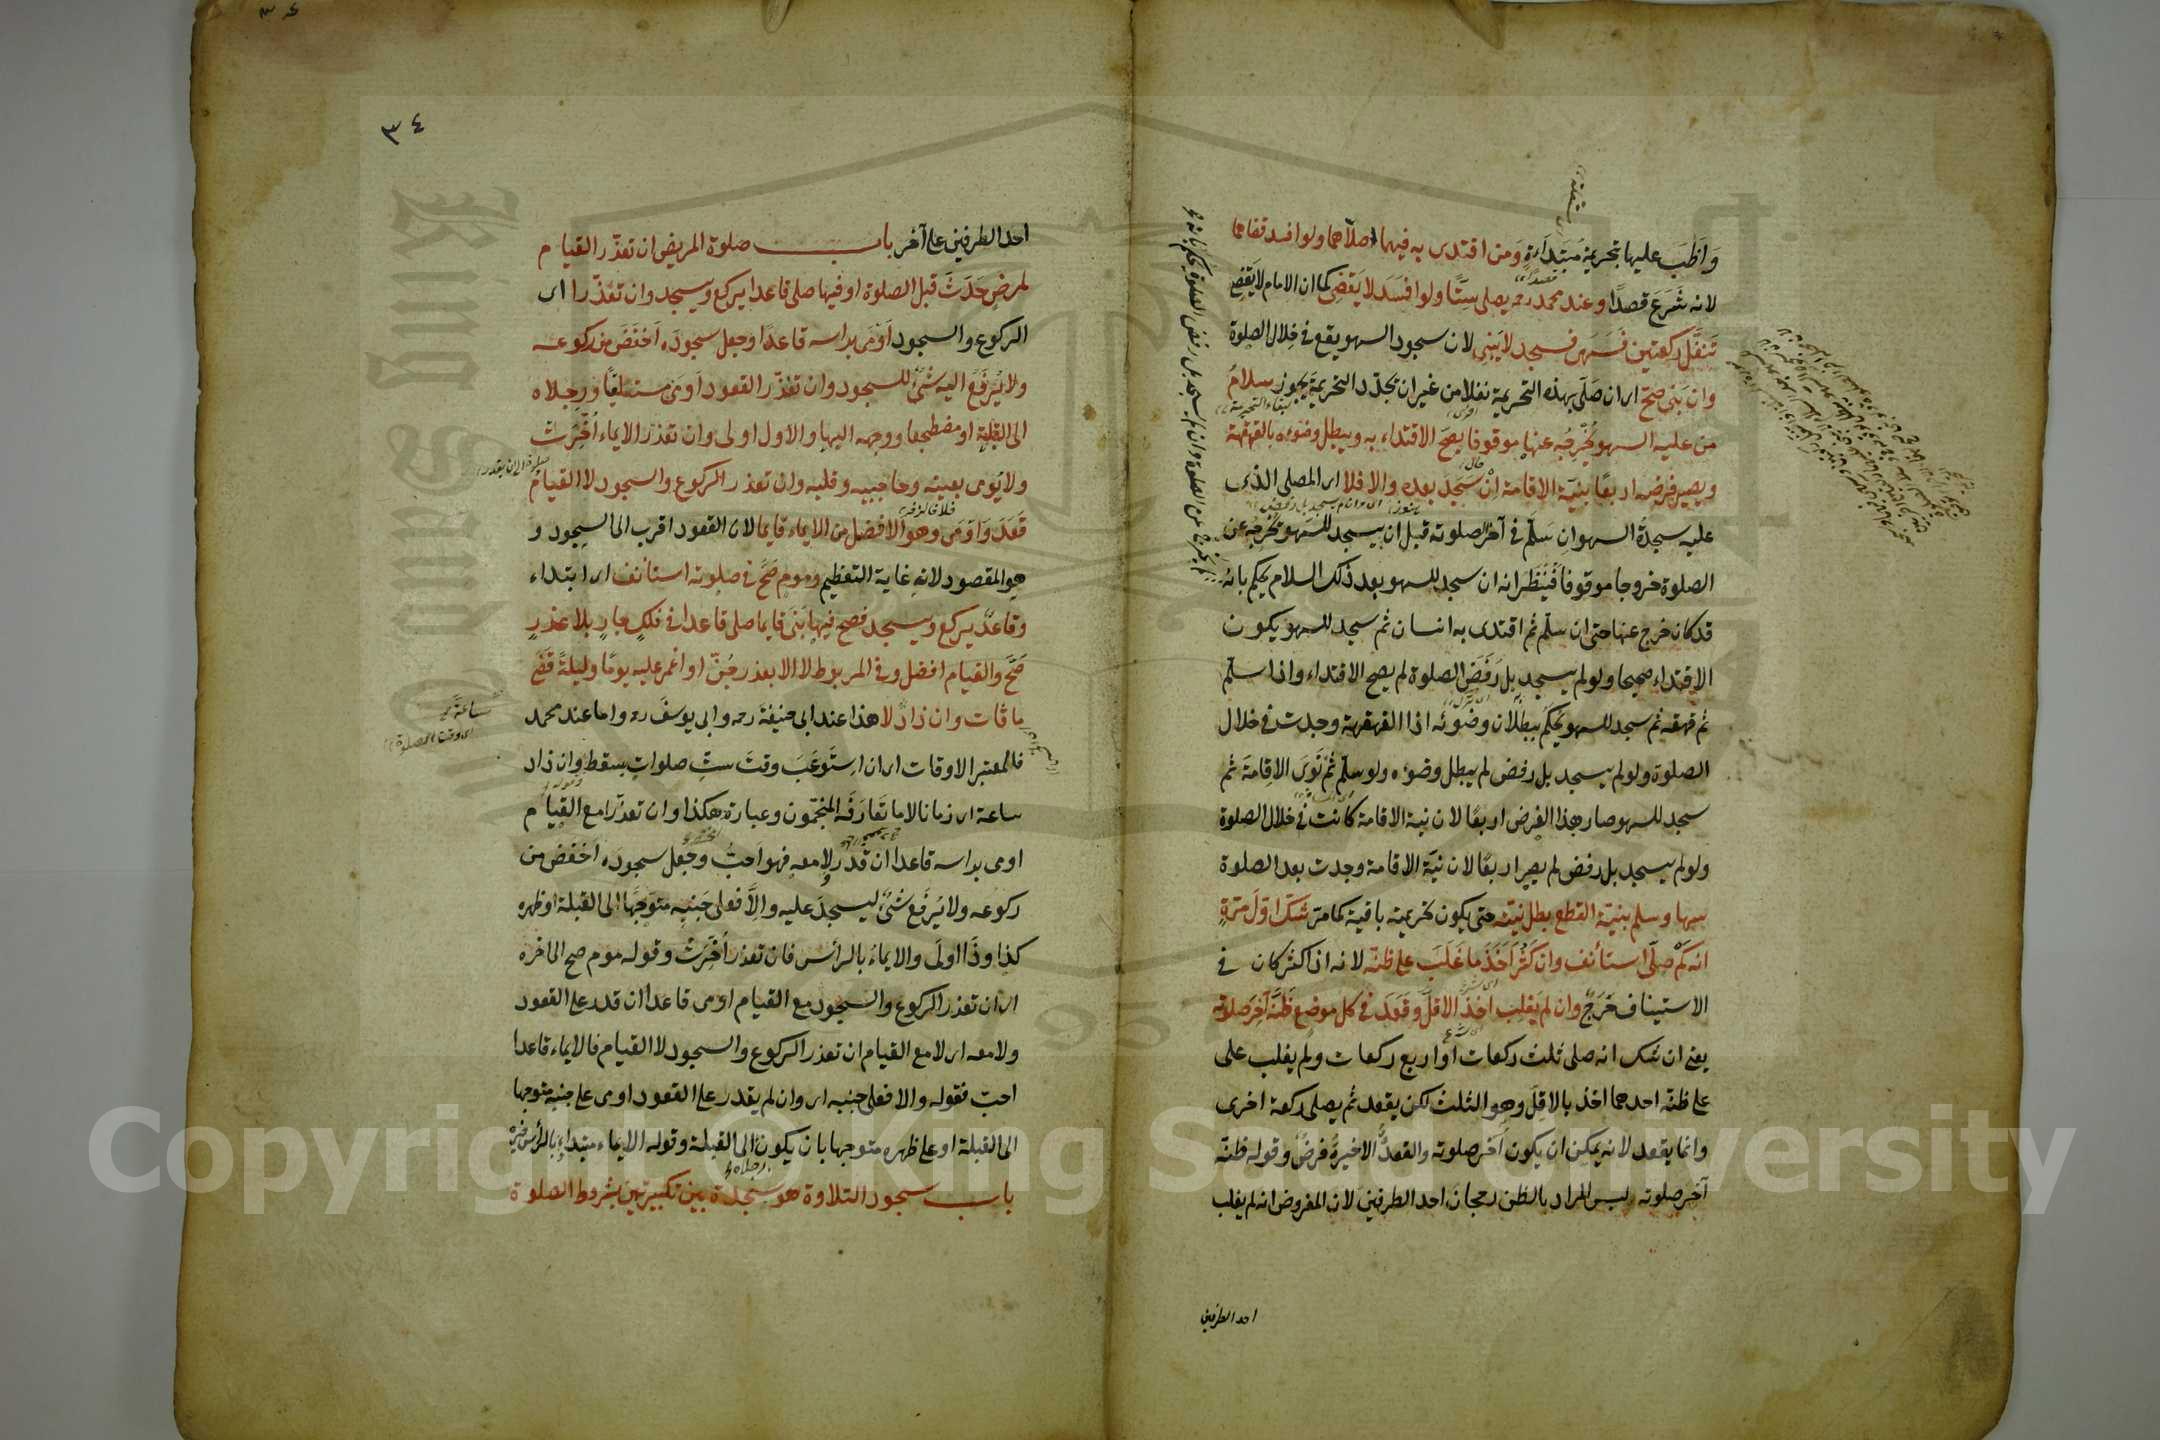 واظب عليها بتحريمة مبتدأة ومن اقتدى به فيهما صلاهما ولو افسد قضاهما
لانه شرع قصدا وعند محمد رحمه يصلى ستا ولو افسد لا يقضى كما ان الامام لا يقضى
تنفل ركعتين فسهى فسجد لا يبنى لان سجود السهو يقع فى خلال الصلوة
وان بنى صح اى ان صلى بهذه التحريمة نفلا من غير ان يجدد التحريمة يجوز سلام
من عليه السهو يخرجه عنها موقوفا يصح الاقتداء به ويبطل وضوءه بالقهقهة
ويصير فرضه اربعا بنية الاقامة ان سجد بعده والا فلا اى المصلى الذى
عليه سجدة السهو ان سلم فى آخر صلوته قبل ان يسجد للسهو يخرجه عن
الصلوة خروجا موقوفا فننظر انه ان سجد للسهو بعد ذلك السلام يحكم بانه
قد كان خرج عنها حتى ان سلم ثم اقتدى به انسان ثم سجد للسهو يكون
الاقتداء صحيحا ولو لم يسجد بل رفض الصلوة لم يصح الاقتداء واذا سلم
ثم قهقه ثم سجد للسهو يحكم ببطلان وضوئه اذا القهقهة وجدت فى خلال
الصلوة ولو لم يسجد بل رفض لم يبطل وضوءه ولو سلم ثم نوى الاقامة ثم
سجد للسهو صار هذا الفرض اربعا لان نية الاقامة كانت فى خلال الصلوة
ولو لم يسجد بل رفض لم يصر اربعا لان نية الاقامة وجدت بعد الصلوة
سها وسلم بنية القطع بطل نيته حتى يكون تحريمته باقية كما مر شك اول مرة
انه كم صلى استأنف وان كثر اخذ ما غلب على ظنه لانه اذا كثر كان فى
الاستيناف حرج وان لم يغلب اخذ الاقل وقعد فى كل موضع ظنه آخر صلوته
يعنى ان شك انه صلى ثلث ركعات او اربع ركعات ولم يغلب على
على ظنه احدهما اخذ بالاقل وهو الثلث لكن يقعد ثم يصلى ركعة اخرى
وانما يقعد لانه يمكن ان يكون آخر صلوته والقعدة الاخيرة فرض وقوله ظنه
آخر صلوته ليس المراد بالظن رجحان احد الطرفين لان المفروض انه لم يغلب
احد الطرفين
٣٤
احد الطرفين على آخر باب صلوة المريض ان تعذر القيام
لمرض حدث قبل الصلوة او فيها صلى قاعدا يركع ويسجد وان تعذرا اى
الركوع والسجود اومى براسه قاعدا وجعل سجوده اخفض من ركوعه
ولا يرفع اليه شئ للسجود وان تعذر القعود اومى مستلقيا ورجلاه
الى القبلة او مضطجعا ووجهه اليها والاول اولى وان تعذر الايماء اخرت
ولا يومى بعينه وحاجبيه وقلبه وان تعذر الركوع والسجود لا القيام
قعد واومى وهو الافضل من الايماء قايما لان القعود اقرب الى السجود و
هو المقصود لانه غاية التعظيم وموم صح فى صلوته استأنف اى ابتداء
وقاعد يركع ويسجد فصح فيها بنى قايما صلى قاعدا فى فلك جار بلا عذر
صح والقيام افضل وفى المربوط لا الا بعذر جن او اغمى عليه يوما وليلة قضى
ما فات وان زاد لا هذا عند ابى حنيفة رحمه وابى يوسف رحمه واما عند محمد
فالمعتبر الاوقات اى ان استوعب وقت ست صلوات يسقط وان زاد
ساعة اى زمانا لا ما تعارفه المنجمون وعبارته هكذا وان تعذرا مع القيام
اومى براسه قاعدا ان قدر ولا معه فهو احب وجعل سجوده اخفض من
ركوعه ولا يرفع شئ ليسجد عليه والا فعلى جنبه متوجها الى القبلة او ظهره
كذا وذا اولى والايماء بالرأس فان تعذر اخرت وقوله موم صح الى آخره
اى ان تعذر الركوع والسجود مع القيام اومى قاعدا ان قدر على القعود
ولا معه اى لا مع القيام ان تعذر الركوع والسجود لا القيام فالايماء قاعدا
احب فقوله والا فعلى جنبه اى وان لم يقدر على القعود اومى على جنبه متوجها
الى القبلة او على ظهره متوجها بان يكون الى القبلة وقوله الايماء مبتداء بالرأس خبره
باب سجود التلاوة هو سجدة بين تكبيرتين بشروط الصلوة
Copyright © King Saud University